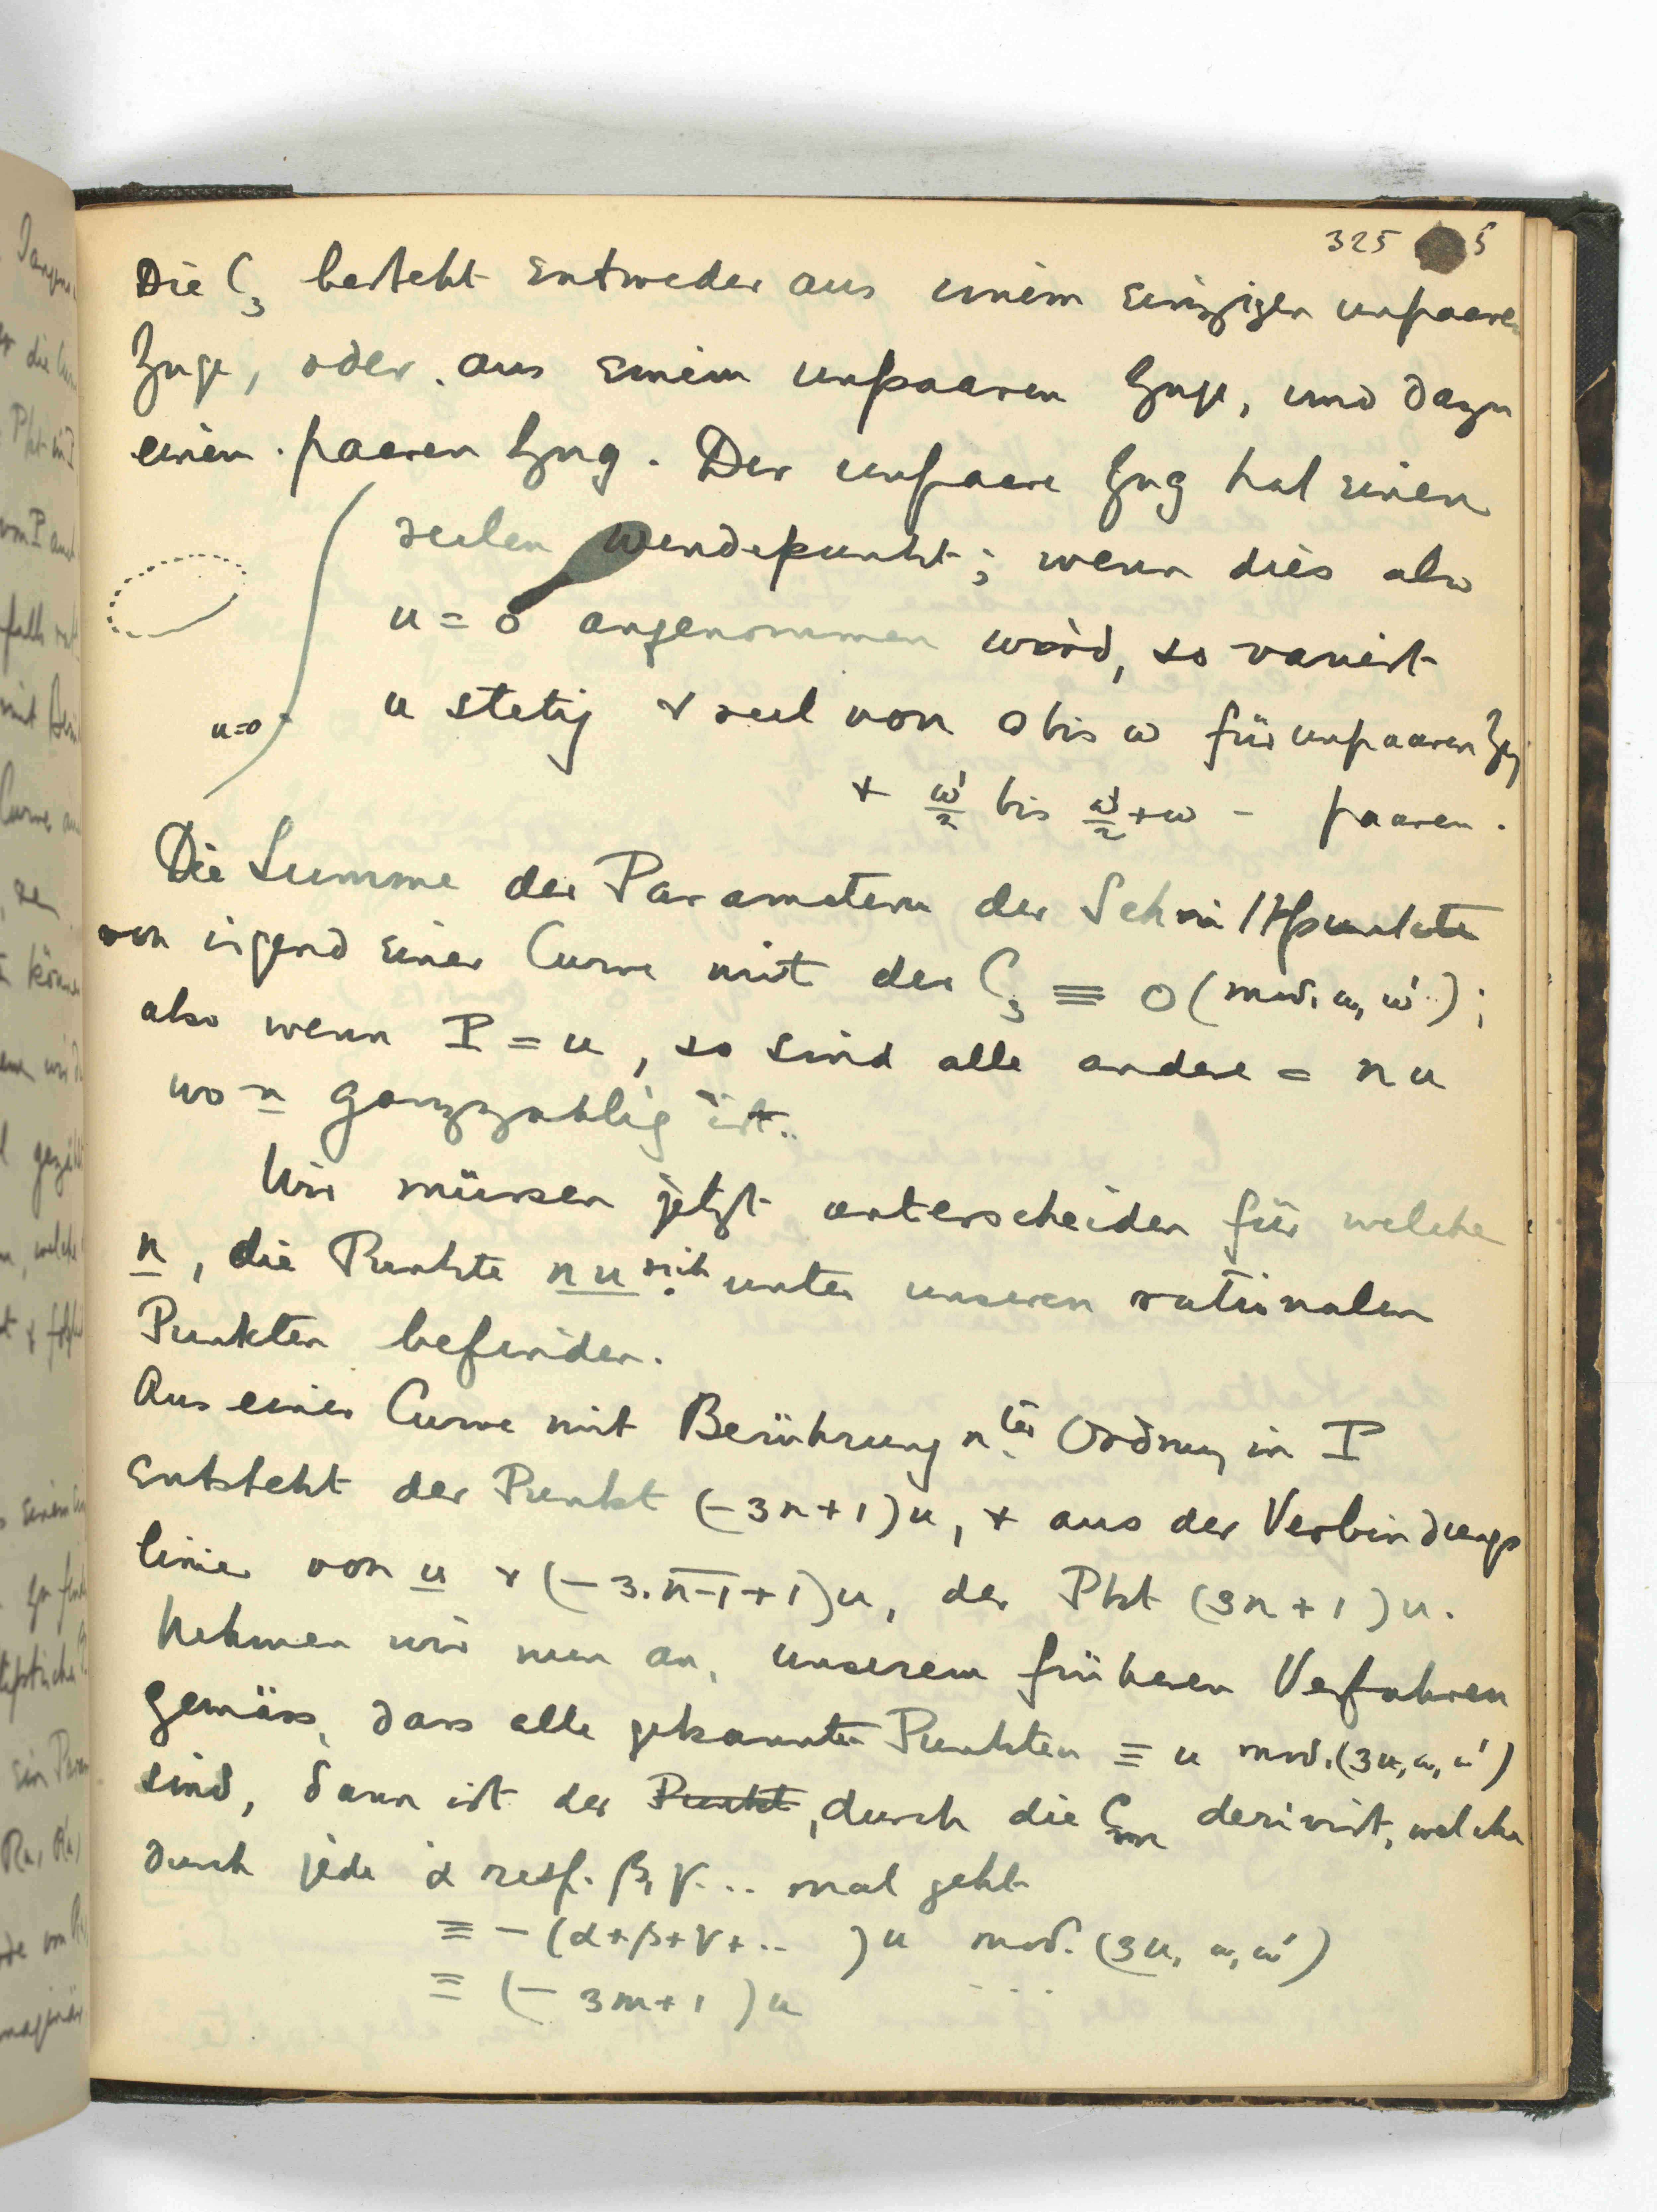 325 5
Die C₃ besteht entweder aus einem einzigen unpaaren
Zuge, oder aus einem unpaaren Zuge, und dazu
einen paaren Zug. Der unpaare Zug hat einen
reelen Wendepunkt; wenn dies als
u = 0 angenommen wird, so variirt
u=0
u stetig & reel von 0 bis ω für unpaaren Zug
& ω'/2 bis ω'/2+ω – paaren.
Die Summe der Parametern der Schnittpunkte
von irgend einer Curve mit der C₃ ≡ 0 (mod. ω, ω');
also wenn I = u, so sind alle andere = nu
wo n ganzzahlig ist.
Wir müssen jetzt unterscheiden für welche
n, die Punkte nu sich unter unseren rationalen
Punkten befinden.
Aus einer Curve mit Berührung nter Ordnung in I
entsteht der Punkt (–3n+1)u, & aus der Verbindungs
linie von u & (–3.n̅-̅1̅+1)u, der Pkt (3n+1)u.
Nehmen wir nun an, unserem früheren Verfahren
gemäss, dass alle gekannte Punkten ≡ u mod.(3u,ω,ω')
sind, dann ist der Punkt, durch die Cm derivirt, welche
durch jede α resp. β, γ... mal geht
≡ –(α+β+γ+.. )u mod. (3u, ω, ω')
≡ (– 3m+1)u ...